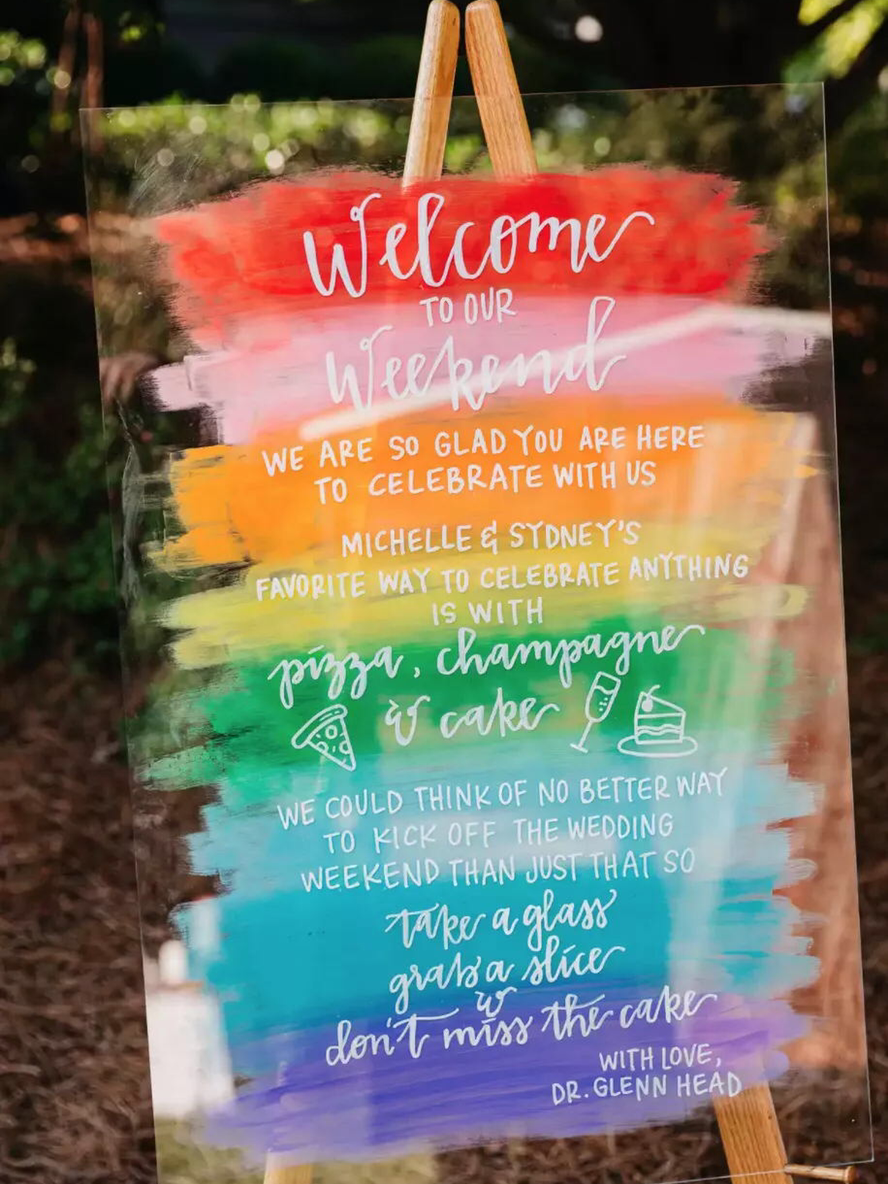 Welcome
TO OUR
Weekend
WE ARE SO GLAD YOU ARE HERE
TO CELEBRATE WITH US
MICHELLE & SYDNEY'S
FAVORITE WAY TO CELEBRATE ANYTHING
IS WITH
pizza, champagne
& cake
WE COULD THINK OF NO BETTER WAY
TO KICK OFF THE WEDDING
WEEKEND THAN JUST THAT SO
take a glass
grab a slice
&
don't miss the cake
WITH LOVE,
DR. GLENN HEAD